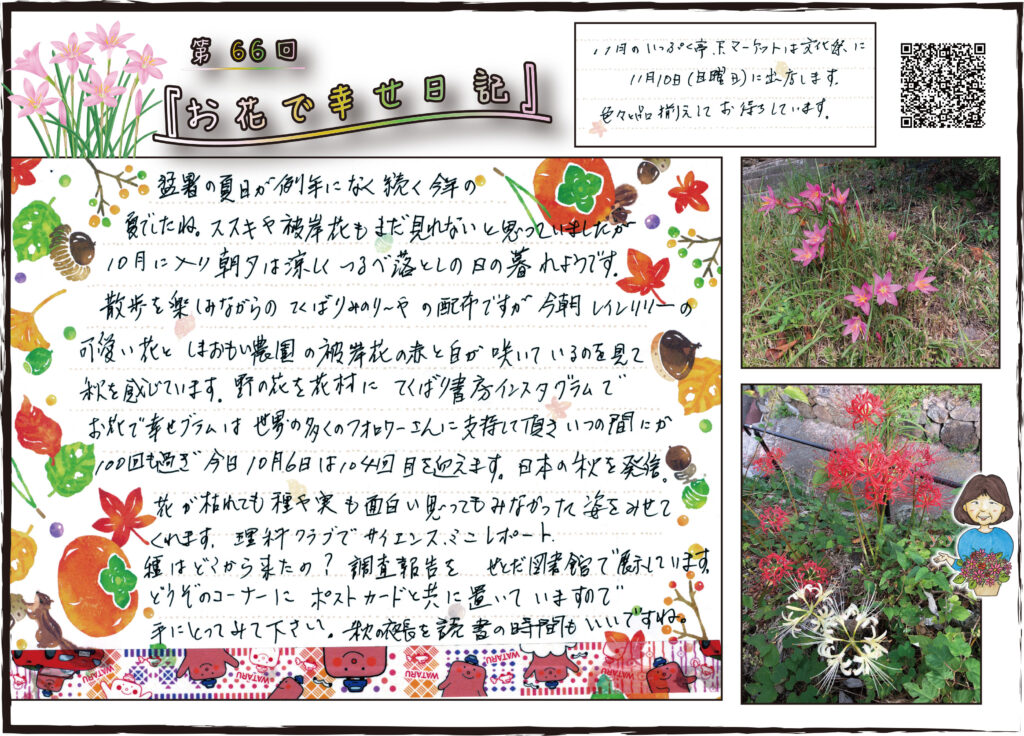 第 66 回
『お花で幸せ日記』
11月のいっぷく亭下マーケットは文化祭に
11月10日(日曜日)に出店します。
色々と品揃えしてお待ちしています。
猛暑の夏日が例年になく続く今年の
夏でしたね。ススキや彼岸花もまだ見れないと思っていましたが
10月に入り朝夕は涼しくつるべ落としの日の暮れようです。
散歩を楽しみながらの てくばりみのり〜や の配布ですが 今朝 レインリリーの
可愛い花と しまおもい農園の彼岸花の赤と白が 咲いているのを見て
秋を感じています。野の花を花材に てくばり書房インスタグラムで
お花で幸せグラムは 世界の多くのフォロワーさんに支持して頂き いつの間にか
100回も過ぎ 今日10月6日は104回目を迎えます。日本の秋を発信。
花が枯れても 種や実も面白い 思ってもみなかった 姿をみせて
くれます。理科クラブで サイエンスミニレポート
種はどこから来たの? 調査報告を せとだ図書館で展示しています。
どうぞのコーナーに ポストカードと共に置いていますので
手にとってみて下さい。秋の夜長を読書の時間もいいですね。
WATARU WATARU WATARU WATARU